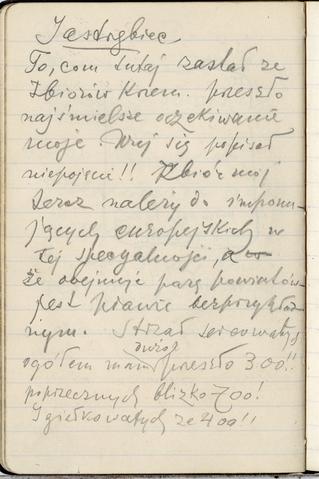 Jastrzębiec
To, com tutaj zastał ze
zbiorów Krzem. przeszło
najśmielsze oczekiwanie
moje. Wuj się popisał
niepojęcie!! Zbiór mój
teraz należy do imponu-
jących europejskich w
tej specjalności, a
że obejmuje parę powiatów
jest prawie bezprzykład
nym. Strzał sercowatych
ogółem mam przeszło 300!!
poprzecznych blizko 700!
Igiełkowatych ze 400!!